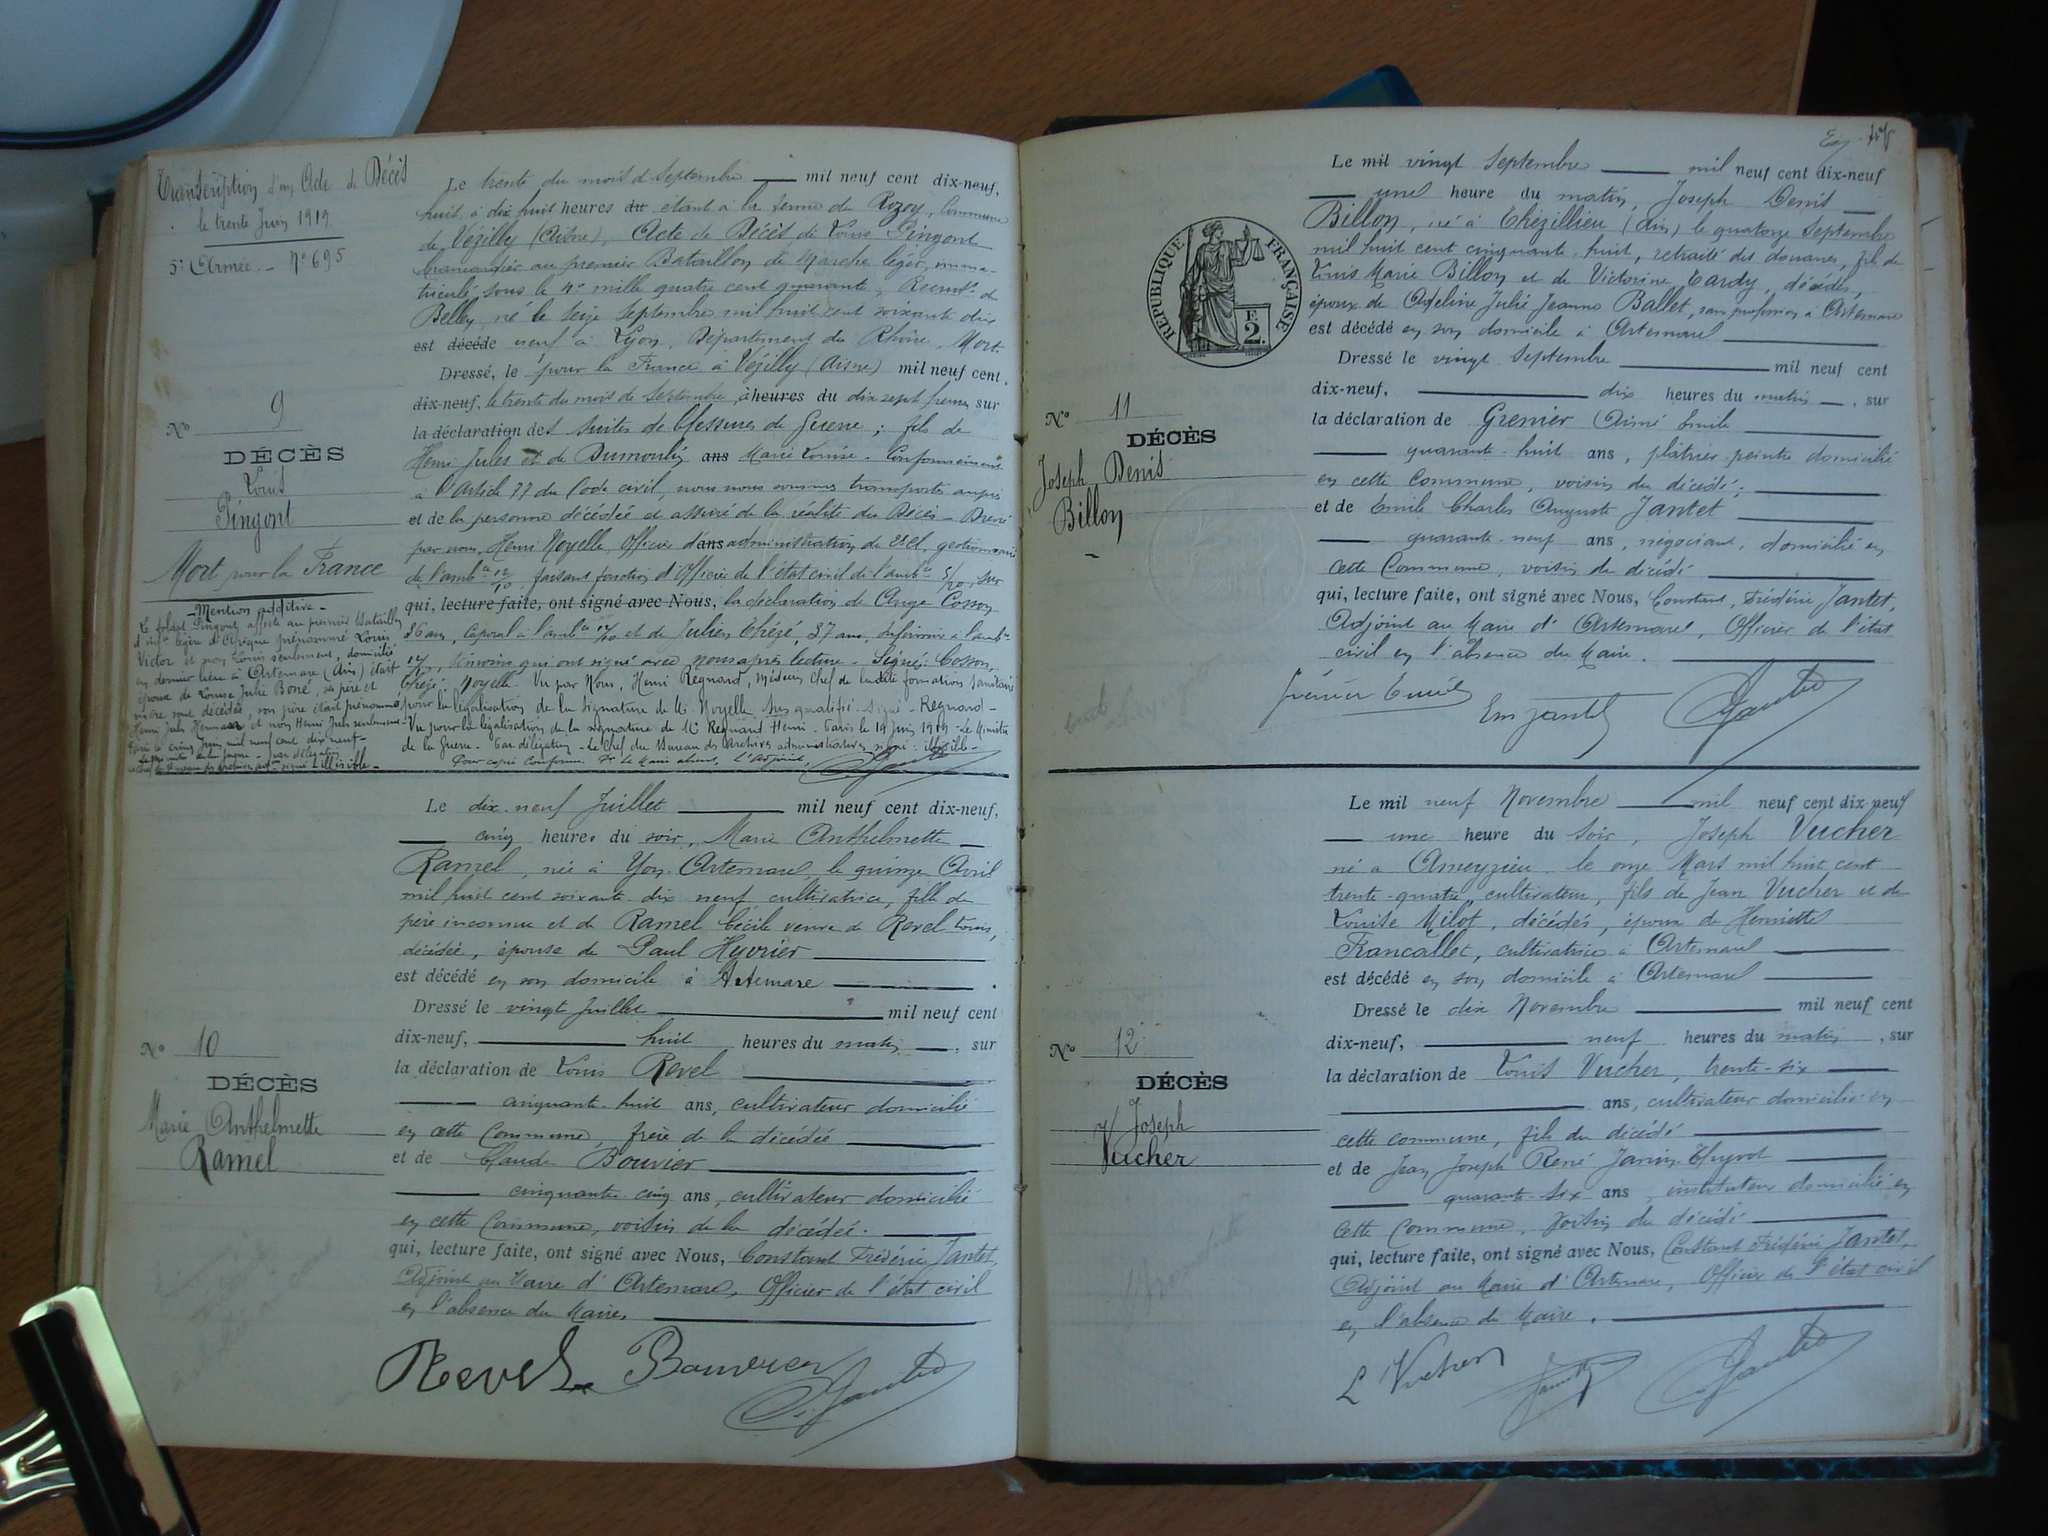 Transcription d'un Acte de Décès
le trente Juin 1919
5e Armée - N° 695
N° 9
DÉCÈS
Louis
Pingont
Mort pour la France
- Mention additive -
Le soldat Pingont, affecté au premier Bataillon
d'inf légère d'Afrique prénommé Louis
Victor et non Louis seulement, domicilié
en dernier lieu à Artemare (Ain) était
époux de Louise Julie Boné, ses père et
mère sont décédés, son père était prénommé
Henri Jules et non Henri Jules seulement
Paris le cinq Juin mil neuf cent dix neuf
signé illisible -
Le trente du mois de Septembre mil neuf cent dix-neuf,
huit à dix huit heures du étant à la ferme de Rozoy, Commune
de Vézilly (Aisne), Acte de Décès de Louis Pingont
brancardier au premier Bataillon de Marche léger, imma-
triculé sous le n° mille quatre cent quarante, Recrut. de
Belley, né le seize Septembre mil huit cent soixante dix
est décédé neuf à Lyon, Département du Rhône, Mort
Dressé, le pour la France à Vézilly (Aisne) mil neuf cent
dix-neuf, le trente du mois de Septembre, à heures du dix sept heures, sur
la déclaration des suites de blessures de guerre ; fils de
Henri Jules et de Dumoulin ans Marie Louise. Conformément
à l'Article 77 du Code civil, nous nous sommes transportés auprès
et de la personne décédée et assuré de la réalité du Décès - Dressé
par nous, Henri Noyelle, Officier d'ans administration de gestionnaire
de l'amb ce 12/10 faisant fonction d'Officier de l'état civil de l'amb ce 5/20, sur
qui, lecture faite, ont signé avec Nous, la déclaration de Ange Cosson
36 ans, Caporal à l'amb ce 12/10 et de Julien Chézé, 37 ans, infirmier à l'amb ce
12/10, témoins qui ont signé avec nous après lecture - Signé : Cosson,
Chézé. Noyelle. Vu par Nous, Henri Regnard, Médecin Chef de ladite formation sanitaire
pour la légalisation de la signature de M. Noyelle sus qualifié. Signé - Regnard -
Vu pour la légalisation de la signature de Mr Regnard Henri - Paris le 19 Juin 1919 - Le Ministre
de la Guerre - Par délégation - Le Chef du Bureau des Archives administratives signé : illisible -
Pour copie conforme. Pr le Maire absent, L'Adjoint,
N° 10
DÉCÈS
Marie Anthelmette
Ramel
Le dix-neuf Juillet mil neuf cent dix-neuf,
cinq heures du soir, Marie Anthelmette
Ramel, née à Yon-Artemare, le quinze Avril
mil huit cent soixante-dix neuf cultivatrice, fille de
père inconnu et de Ramel Cécile veuve de Revel Louis,
décédée, épouse de Paul Hyvrier
est décédé en son domicile à Artemare
Dressé le vingt Juillet mil neuf cent
dix-neuf, huit heures du matin, sur
la déclaration de Louis Revel
cinquante-huit ans, cultivateur domicilié
en cette Commune, frère de la décédée
et de Claude Bouvier
cinquante cinq ans, cultivateur domicilié
en cette Commune, voisin de la décédée.
qui, lecture faite, ont signé avec Nous, Constant Frédéric Jantet,
Adjoint au Maire d'Artemare, Officier de l'état civil
en l'absence du Maire.
Revel Bouvier Jantet
RÉPUBLIQUE FRANÇAISE
F.
2.
N° 11
DÉCÈS
Joseph Denis
Billon
Le mil vingt Septembre mil neuf cent dix-neuf
une heure du matin, Joseph Denis
Billon, né à Chézillieu (Ain) le quatorze Septembre
mil huit cent cinquante-huit, retraité des douanes, fils de
Louis Marie Billon et de Victorine Tardy, décédés,
époux de Adeline Julie Jeanne Ballet, sans profession à Artemare
est décédé en son domicile à Artemare
Dressé le vingt Septembre mil neuf cent
dix-neuf, dix heures du matin, sur
la déclaration de Grenier Aimé Emile
quarante-huit ans, plâtrier-peintre domicilié
en cette Commune, voisin du décédé;
et de Emile Charles Auguste Jantet
quarante-neuf ans, négociant, domicilié en
cette Commune, voisin du décédé
qui, lecture faite, ont signé avec Nous, Constant, Frédéric Jantet,
Adjoint au Maire d'Artemare, Officier de l'état
civil en l'absence du Maire.
Grenier Emile Em Jantet Jantet
N° 12
DÉCÈS
Joseph
Vucher
Le mil neuf Novembre mil neuf cent dix neuf
une heure du soir, Joseph Vucher
né à Ameyzieu le onze Mars mil huit cent
trente-quatre, cultivateur, fils de Jean Vucher et de
Louise Milot, décédés, époux de Henriette
Francallet, cultivatrice à Artemare
est décédé en son domicile à Artemare
Dressé le dix Novembre mil neuf cent
dix-neuf, neuf heures du matin, sur
la déclaration de Louis Vucher, trente-six
ans, cultivateur domicilié en
cette commune, fils du décédé
et de Jean Joseph René Janin-Thyvot
quarante-six ans, instituteur domicilié en
cette Commune, voisin du décédé
qui, lecture faite, ont signé avec Nous, Constant Frédéric Jantet,
Adjoint au Maire d'Artemare, Officier de l'état civil
en l'absence du Maire.
L Vucher Jantet